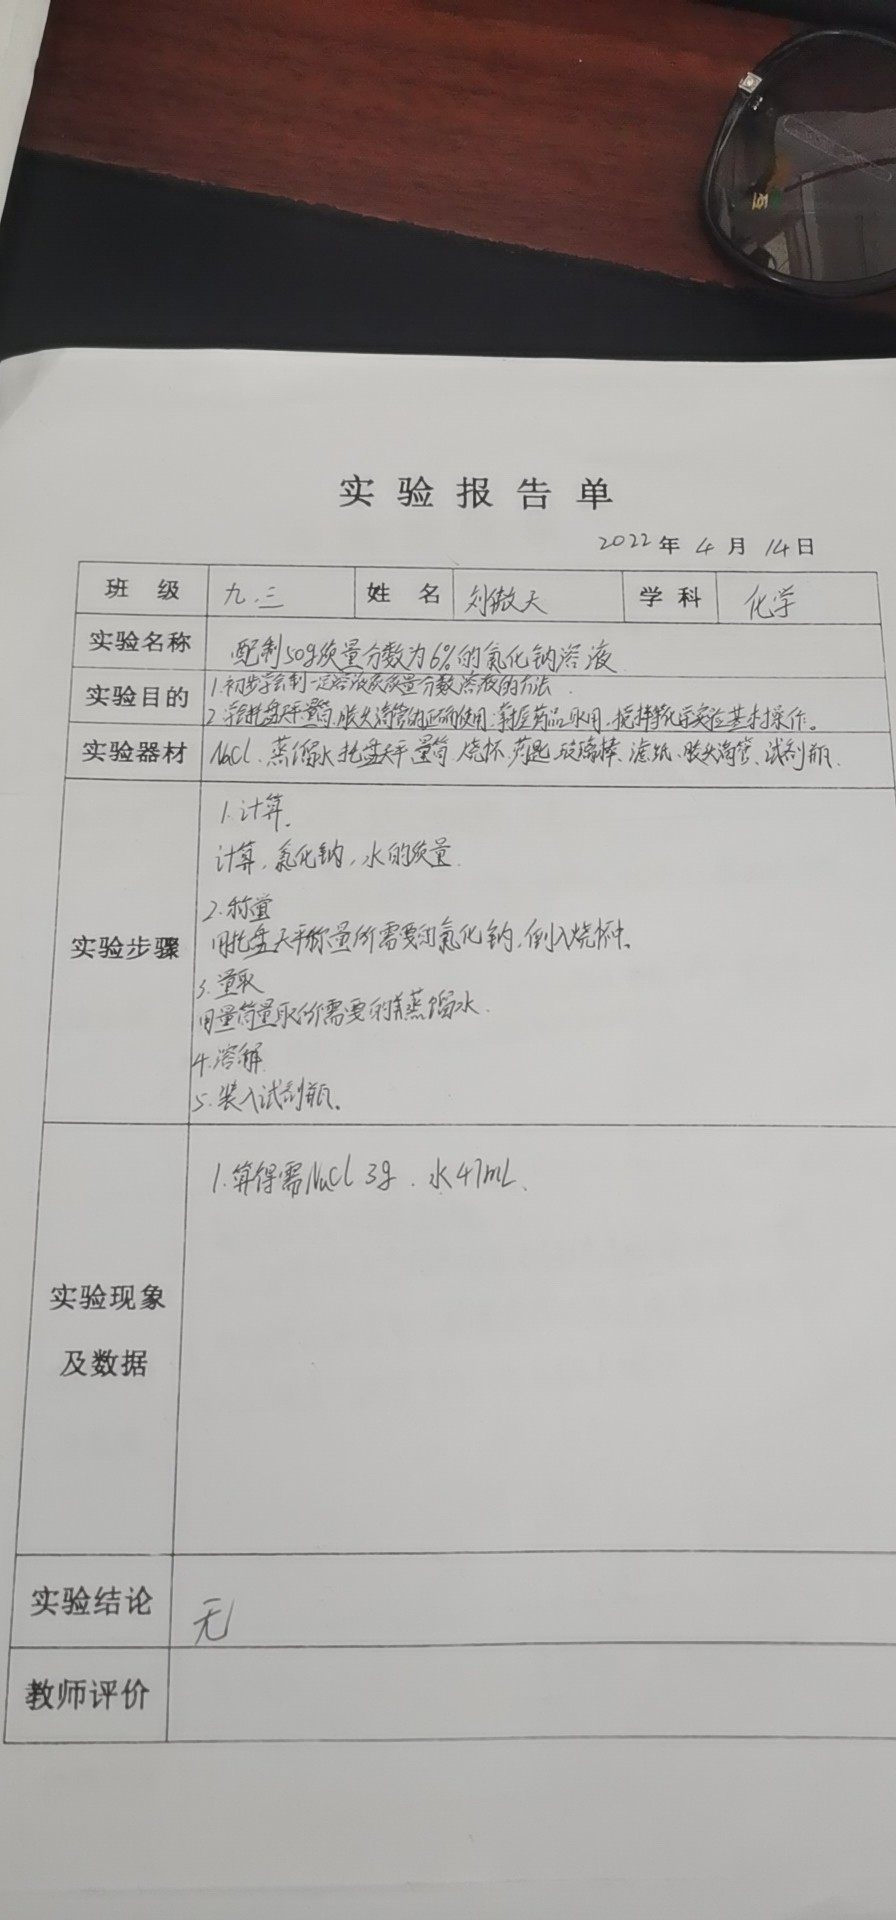 实验报告单
2022年4月14日
班级 九.三 姓名 刘傲天 学科 化学
实验名称 配制50g质量分数为6%的氯化钠溶液
实验目的 1.初步学会制一定溶液质量分数溶液的方法.
2.学会托盘天平.量筒.胶头滴管的正确使用.掌握药品取用.搅拌等化学实验基本操作。
实验器材 NaCl.蒸馏水.托盘天平.量筒.烧杯.药匙.玻璃棒、滤纸、胶头滴管、试剂瓶.
实验步骤
1.计算.
计算,氯化钠,水的质量.
2.称量
用托盘天平称量所需要的氯化钠,倒入烧杯中.
3.量取
用量筒量取所需要的蒸馏水.
4.溶解
5.装入试剂瓶。
实验现象
及数据
1.算得需NaCl 3g.水47mL.
实验结论 无
教师评价